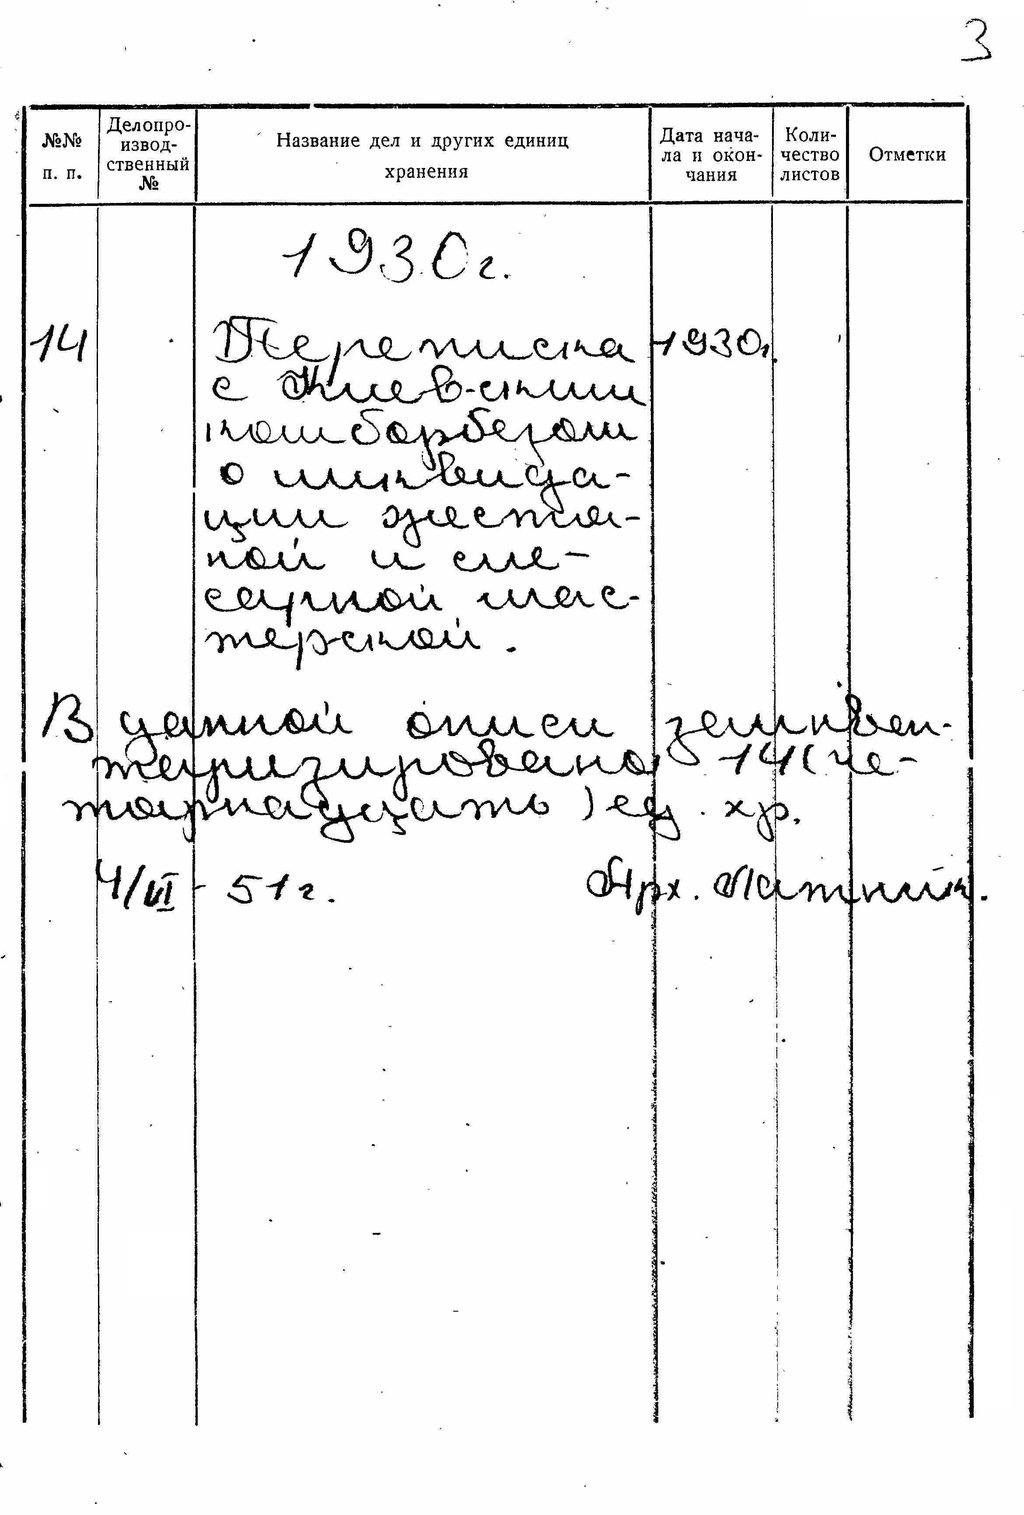 3
№№ п. п.
Делопро-
извод-
ственный
№
Название дел и других единиц
хранения
Дата нача-
ла и окон-
чания
Коли-
чество
листов
Отметки
1930г.
14 Переписка 1930г.
с Киевским
комборбезом
о ликвида-
ции жестя-
ной и сле-
сарной мас-
терской.
В данной описи заинвен-
таризировано 14 (че-
тырнадцать) ед. хр.
4/VI - 51г. Арх.